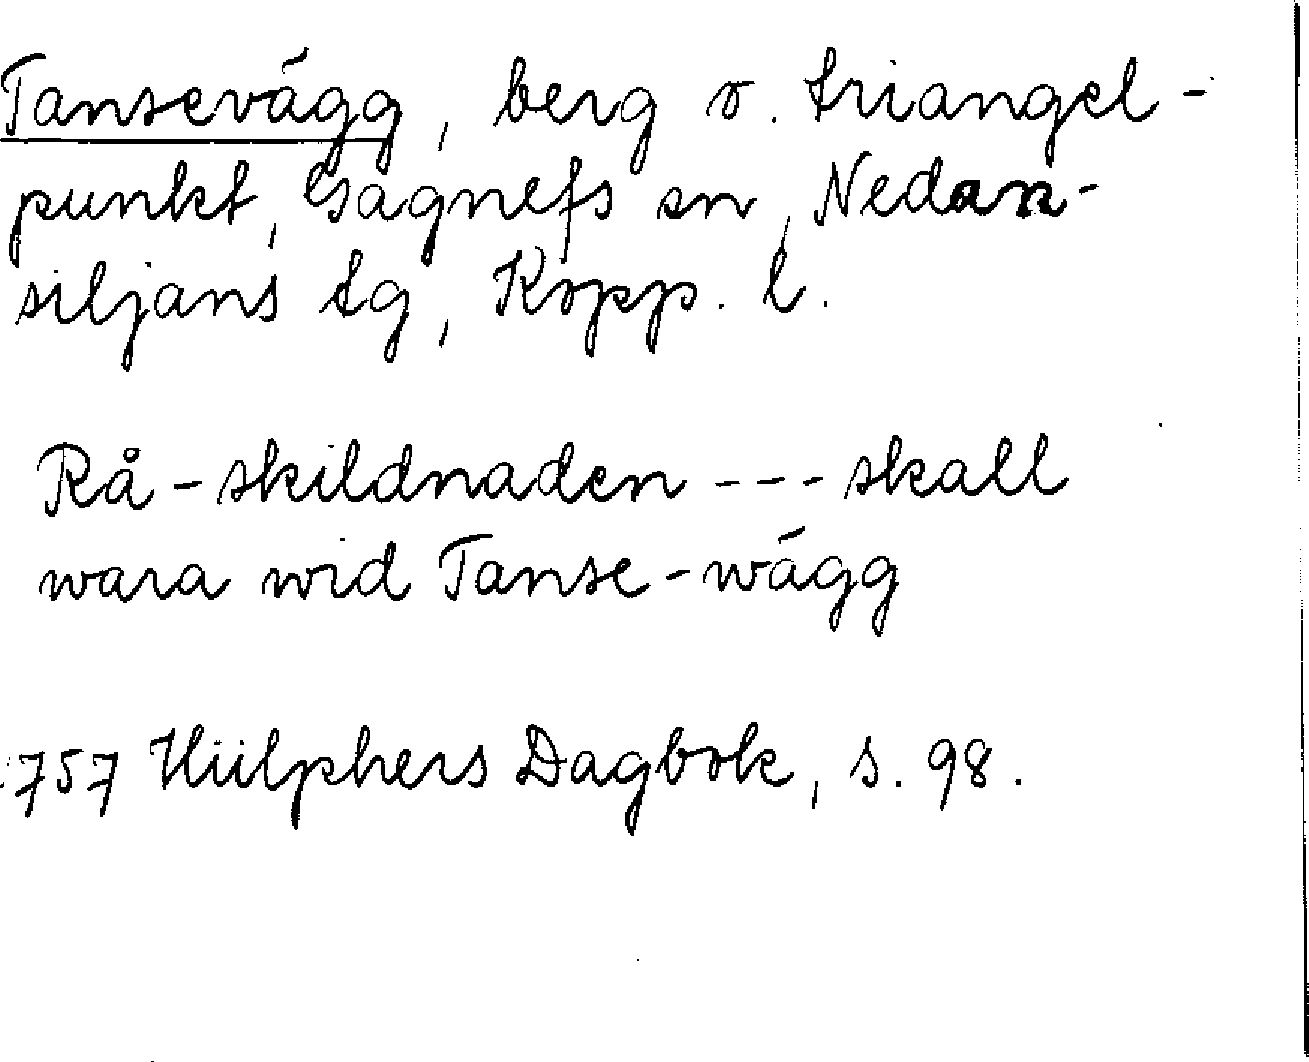 Tansevägg, berg o. triangel-
punkt, Gagnefs sn, Nedan-
siljans tg, Kopp. l.
Rå-skildnaden --- skall
wara wid Tanse-wägg
1757 Hülphers Dagbok, s. 98.